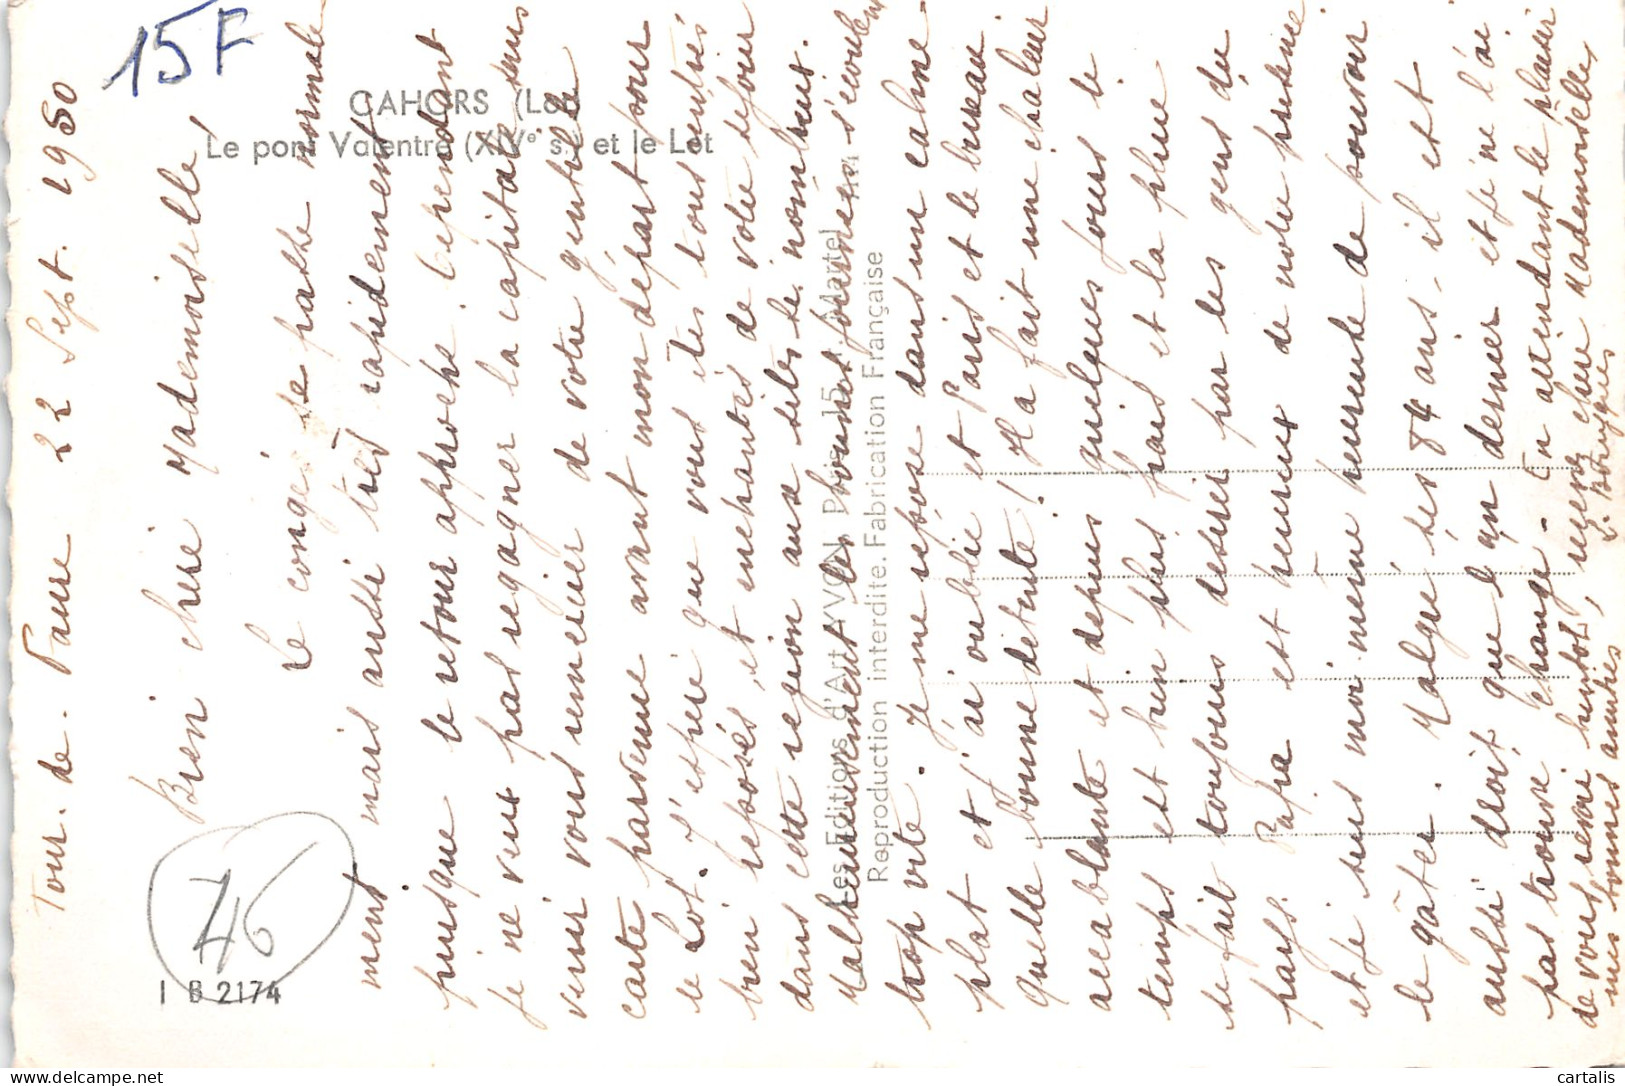 15F
CAHORS (Lot)
Le pont Valentré (XIVᵉ s.) et le Lot
46
I B 2174
Les Editions d'Art YVON Paris 15, r. Martel
Reproduction interdite. Fabrication Française
Tour. de. Faure 22 Sept. 1950
Bien chère Mademoiselle
Le congé se passe normale
ment mais aussi très rapidement
puisque le retour approche. Cependant
je ne veux pas regagner la capitale sans
venir vous remercier de votre gentille
carte parvenue avant mon départ pour
le Lot. J'espère que vous êtes tous rentrés
bien reposés, et enchantés de votre séjour
dans cette région aux sites si nombreux.
Malheureusement les bonnes journées s'écoulent
trop vite. Je me repose dans un calme
plat et j'ai oublié et Paris et le bureau
Quelle bonne détente! Il a fait une chaleur
accablante et depuis quelques jours le
temps est bien plus frais et la pluie
se fait toujours désirer par les gens du
pays. Papa est heureux de notre présence
et je suis moi même heureuse de pouvoir
le gâter. Malgré ses 84 ans, il est
aussi droit que l'an dernier et je ne l'ai
pas trouvé changé. En attendant le plaisir
de vous revoir bientôt, recevez chère Mademoiselle,
mes bonnes amitiés